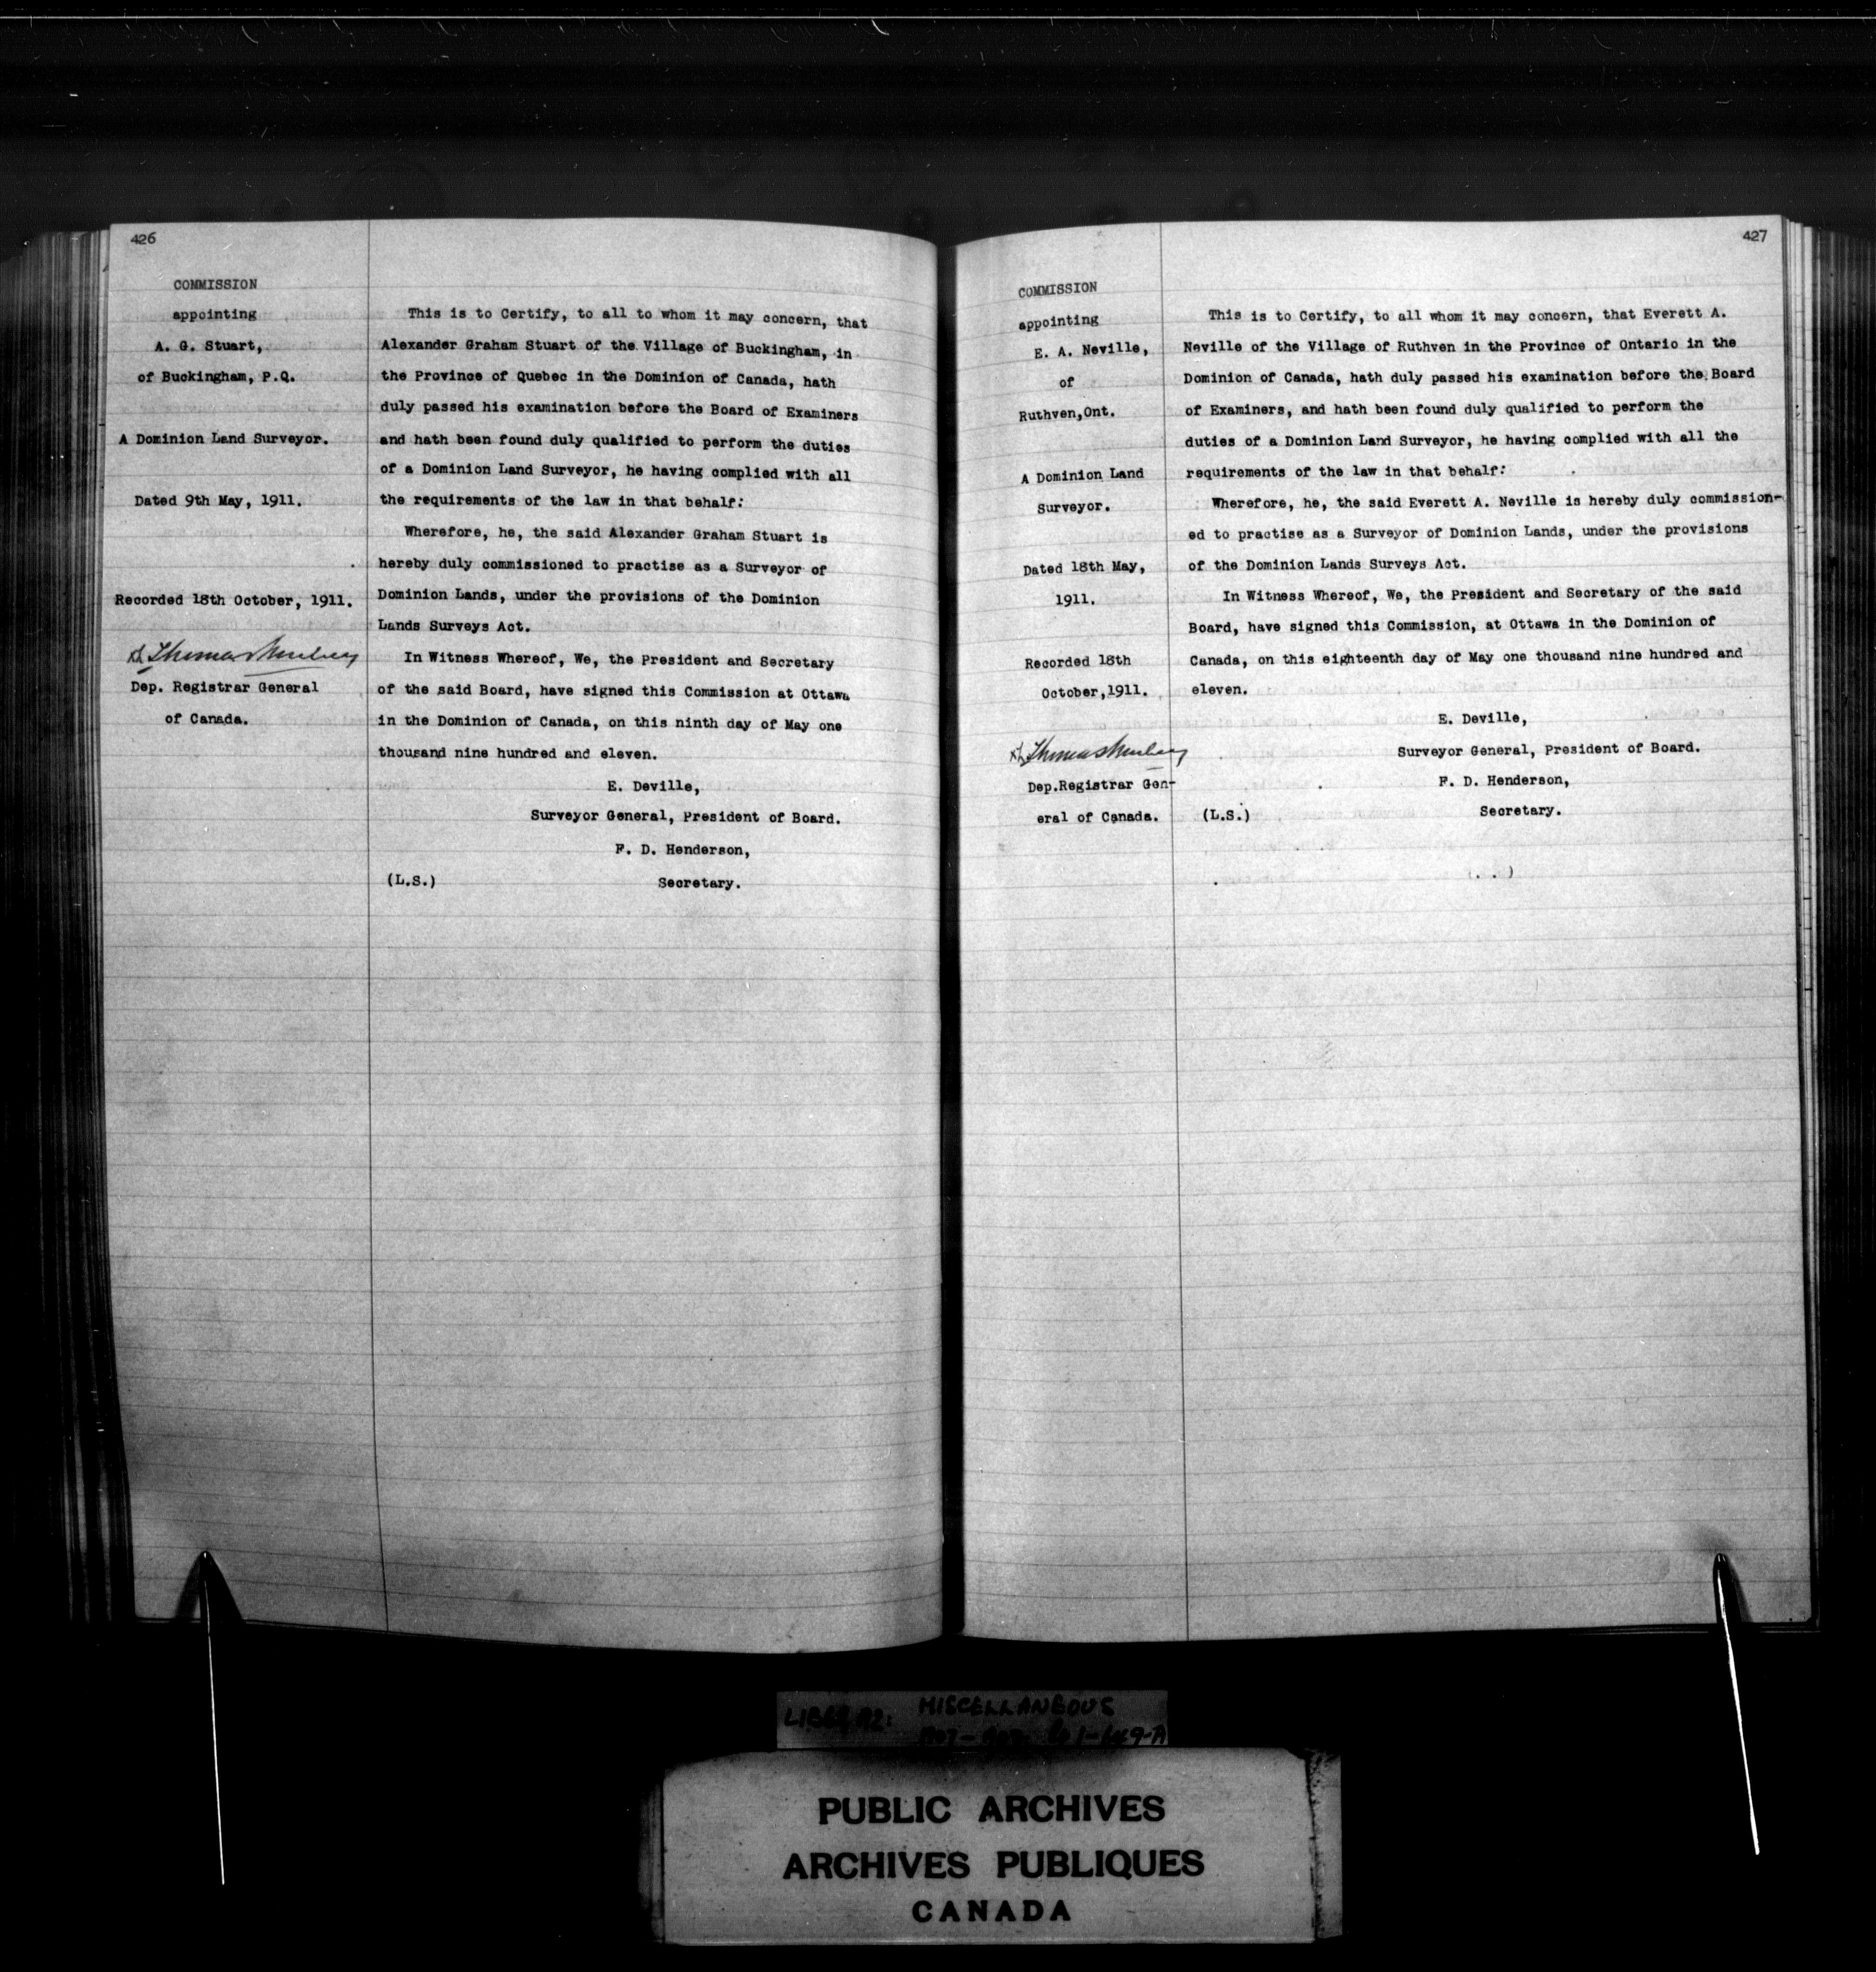 426
COMMISSION
appointing
A. G. Stuart,
of Buckingham, P.Q.
A Dominion Land Surveyor.
Dated 9th May, 1911.
Recorded 18th October, 1911.
Thomas Mulvey
Dep. Registrar General
of Canada.
This is to Certify, to all to whom it may concern, that
Alexander Graham Stuart of the Village of Buckingham, in
the Province of Quebec in the Dominion of Canada, hath
duly passed his examination before the Board of Examiners
and hath been found duly qualified to perform the duties
of a Dominion Land Surveyor, he having complied with all
the requirements of the law in that behalf:
Wherefore, he, the said Alexander Graham Stuart is
hereby duly commissioned to practise as a Surveyor of
Dominion Lands, under the provisions of the Dominion
Lands Surveys Act.
In Witness Whereof, We, the President and Secretary
of the said Board, have signed this Commission at Ottawa
in the Dominion of Canada, on this ninth day of May one
thousand nine hundred and eleven.
E. Deville,
Surveyor General, President of Board.
F. D. Henderson,
(L.S.) Secretary.
427
COMMISSION
appointing
E. A. Neville,
of
Ruthven,Ont.
A Dominion Land
Surveyor.
Dated 18th May,
1911.
Recorded 18th
October,1911.
Thomas Mulvey
Dep.Registrar Gen-
eral of Canada.
This is to Certify, to all whom it may concern, that Everett A.
Neville of the Village of Ruthven in the Province of Ontario in the
Dominion of Canada, hath duly passed his examination before the Board
of Examiners, and hath been found duly qualified to perform the
duties of a Dominion Land Surveyor, he having complied with all the
requirements of the law in that behalf:
Wherefore, he, the said Everett A. Neville is hereby duly commission-
ed to practise as a Surveyor of Dominion Lands, under the provisions
of the Dominion Lands Surveys Act.
In Witness Whereof, We, the President and Secretary of the said
Board, have signed this Commission, at Ottawa in the Dominion of
Canada, on this eighteenth day of May one thousand nine hundred and
eleven.
E. Deville,
Surveyor General, President of Board.
F. D. Henderson,
(L.S.) Secretary.
MISCELLANEOUS
PUBLIC ARCHIVES
ARCHIVES PUBLIQUES
CANADA